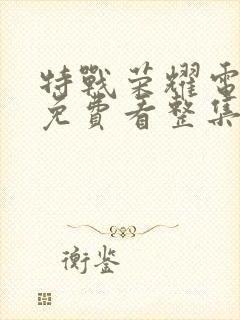 特戰荣耀電
免費看整集
衡鉴